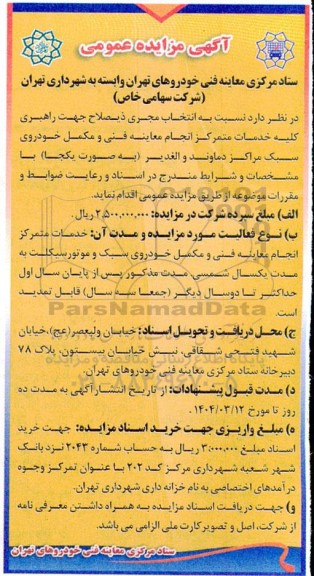 آگهی مزایده عمومی
ستاد مرکزی معاینه فنی خودروهای تهران وابسته به شهرداری تهران
(شرکت سهامی خاص)
در نظر دارد نسبت به انتخاب مجری ذیصلاح جهت راهبری
کلیه خدمات متمرکز انجام معاینه فنی و مکمل خودروی
سبک مراکز دماوند و الغدیر (به صورت یکجا) با
مشخصات و شرایط مندرج در اسناد و رعایت ضوابط و
مقررات موضوعه از طریق مزایده عمومی اقدام نماید.
الف) مبلغ سپرده شرکت در مزایده: ۲,۵۰۰,۰۰۰,۰۰۰ ریال.
ب) نوع فعالیت مورد مزایده و مدت آن: خدمات متمرکز
انجام معاینه فنی و مکمل خودروی سبک و موتورسیکلت به
مدت یکسال شمسی مدت مذکور پس از پایان سال اول
حداکثر تا دوسال دیگر (جمعا سه سال) قابل تمدید
است.
ج) محل دریافت و تحویل اسناد: خیابان ولیعصر(عج)، خیابان
شهید فتحی شقاقی، نبش خیابان بیستون، پلاک ۷۸
دبیرخانه ستاد مرکزی معاینه فنی خودروهای تهران.
د) مدت قبول پیشنهادات: از تاریخ انتشار آگهی به مدت ده
روز تا مورخ ۱۴۰۴/۰۳/۱۲.
ه) مبلغ واریزی جهت خرید اسناد مزایده: جهت خرید
اسناد مبلغ ۳,۰۰۰,۰۰۰ ریال به حساب شماره ۲۰۴۳ نزد بانک
شهر شعبه شهرداری مرکز کد ۲۰۲ با عنوان تمرکز وجوه
درآمدهای اختصاصی به نام خزانه داری شهرداری تهران.
و) جهت دریافت اسناد مزایده به همراه داشتن معرفی نامه
از شرکت، اصل و تصویر کارت ملی الزامی می باشد.
ستاد مرکزی معاینه فنی خودروهای تهران
ParsNamadData